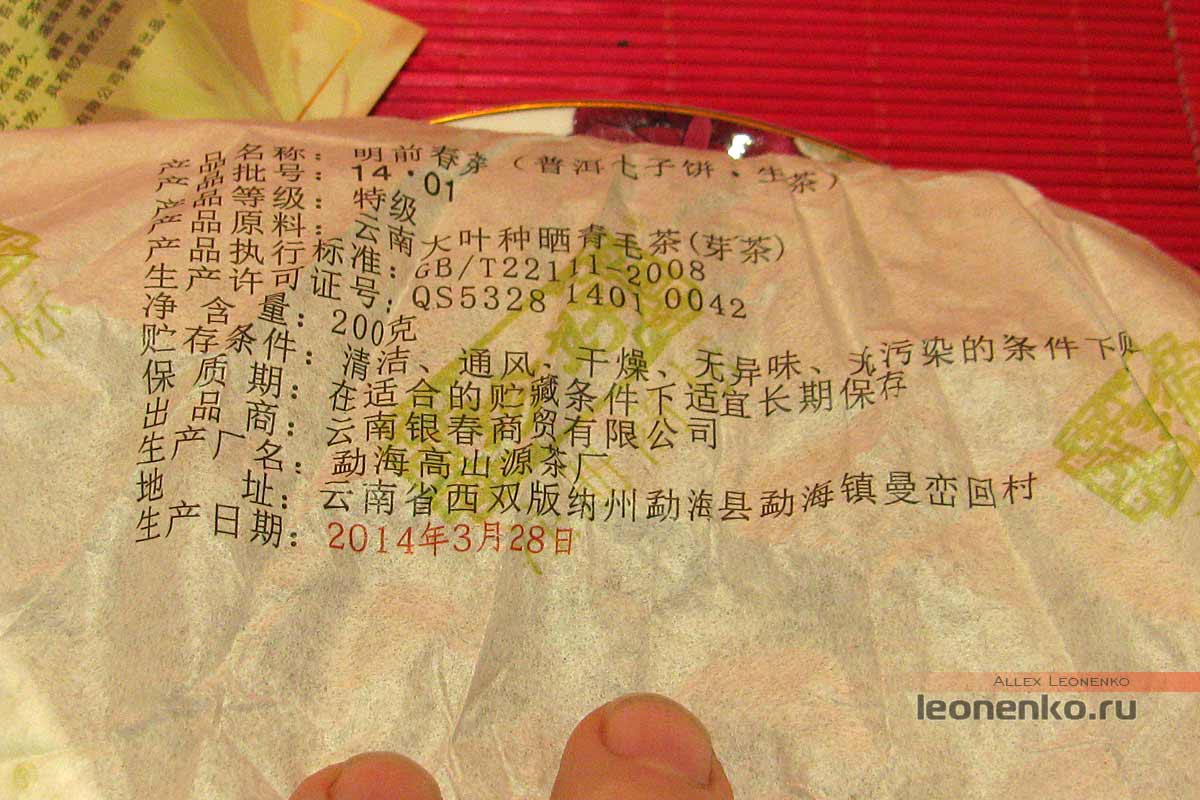 产品名称：明前春芽（普洱七子饼·生茶）
产品批号：14·01
产品等级：特级
产品原料：云南大叶种晒青毛茶(芽茶)
产品执行标准：GB/T22111-2008
生产许可证号：QS5328 1401 0042
净含量：200克
贮存条件：清洁、通风、干燥、无异味、无污染的条件下贮
保质期：在适合的贮藏条件下适宜长期保存
出品商：云南银春商贸有限公司
生产厂名：勐海高山源茶厂
地址：云南省西双版纳州勐海县勐海镇曼峦回村
生产日期：2014年3月28日
Allex Leonenko
leonenko.ru